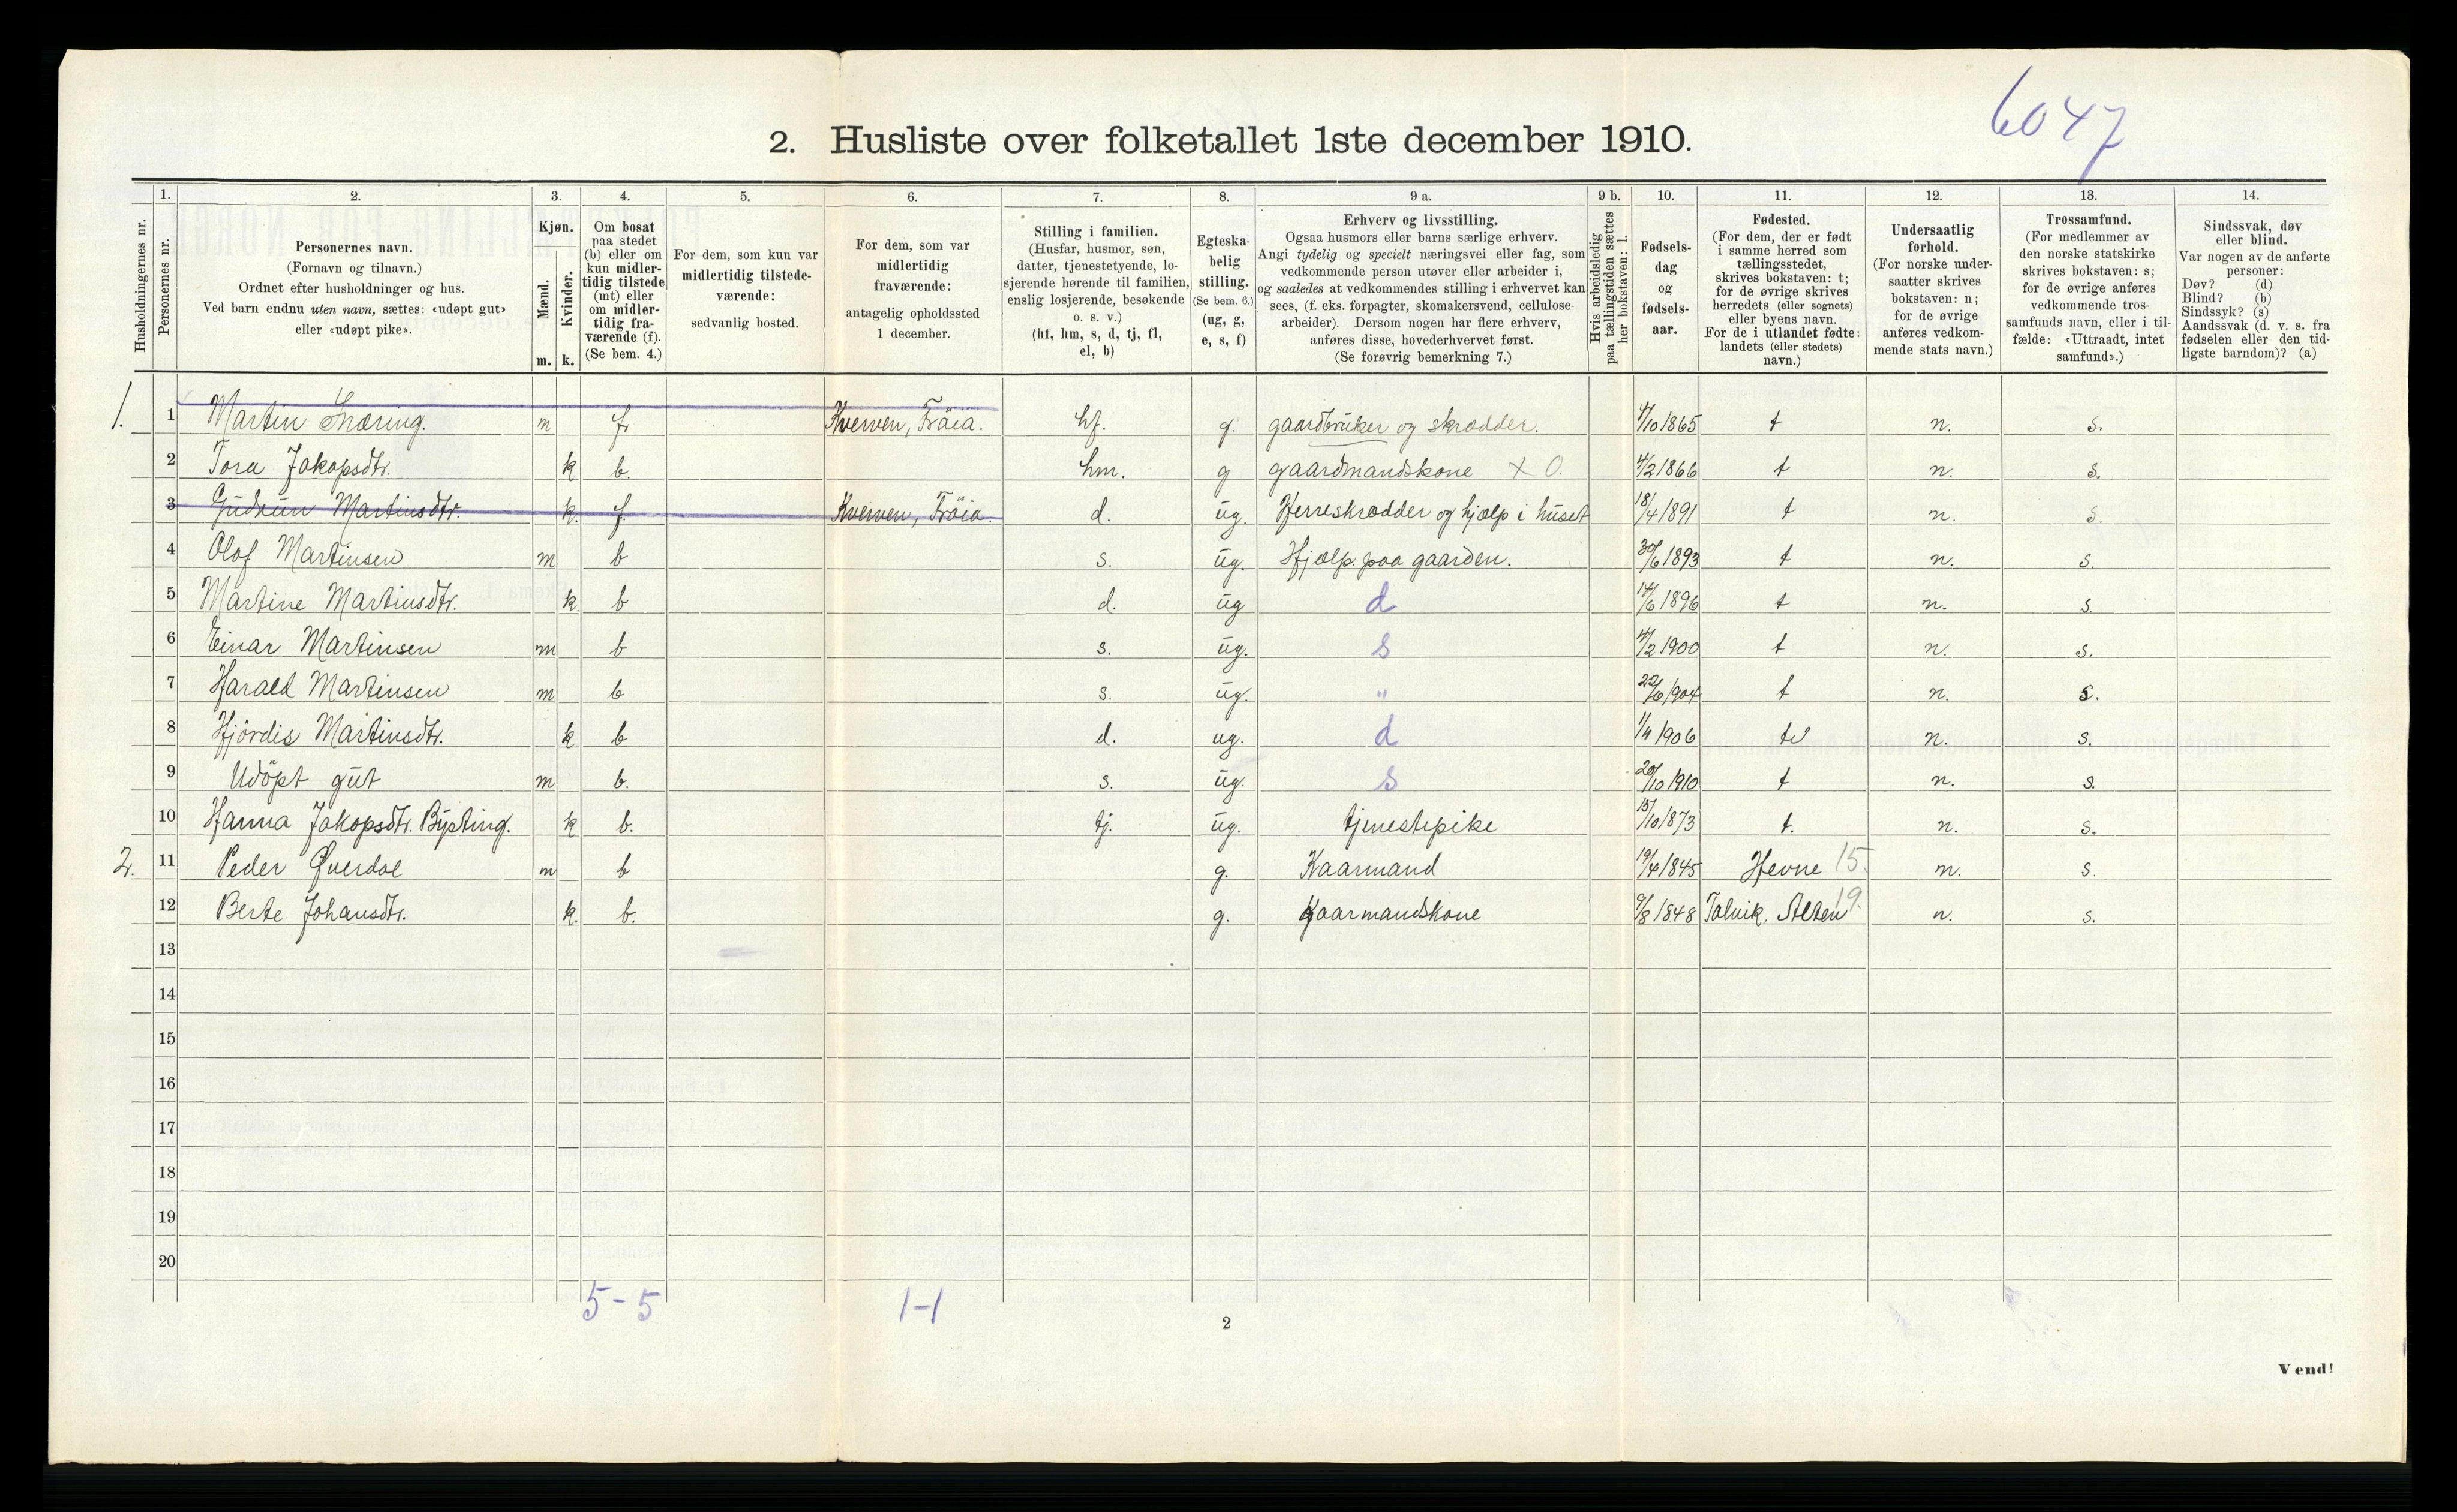 6047
2. Husliste over folketallet 1ste december 1910.
Husholdningernes nr.
1. Personernes nr.
2. Personernes navn. (Fornavn og tilnavn.) Ordnet efter husholdninger og hus. Ved barn endnu uten navn, sættes: «udøpt gut» eller «udøpt pike».
3. Kjøn. Mænd. m. Kvinder. k.
4. Om bosat paa stedet (b) eller om kun midlertidig tilstede (mt) eller om midlertidig fraværende (f). (Se bem. 4.)
5. For dem, som kun var midlertidig tilstedeværende: sedvanlig bosted.
6. For dem, som var midlertidig fraværende: antagelig opholdssted 1 december.
7. Stilling i familien. (Husfar, husmor, søn, datter, tjenestetyende, losjerende hørende til familien, enslig losjerende, besøkende o. s. v.) (hf, hm, s, d, tj, fl, el, b)
8. Egteskabelig stilling. (Se bem. 6.) (ug, g, e, s, f)
9 a. Erhverv og livsstilling. Ogsaa husmors eller barns særlige erhverv. Angi tydelig og specielt næringsvei eller fag, som vedkommende person utøver eller arbeider i, og saaledes at vedkommendes stilling i erhvervet kan sees, (f. eks. forpagter, skomakersvend, cellulosearbeider). Dersom nogen har flere erhverv, anføres disse, hovederhvervet først. (Se forøvrig bemerkning 7.)
9 b. Hvis arbeidsledig paa tællingstiden sættes her bokstaven: l.
10. Fødselsdag og fødselsaar.
11. Fødested. (For dem, der er født i samme herred som tællingsstedet, skrives bokstaven: t; for de øvrige skrives herredets (eller sognets) eller byens navn. For de i utlandet fødte: landets (eller stedets) navn.)
12. Undersaatlig forhold. (For norske undersaatter skrives bokstaven: n; for de øvrige anføres vedkommende stats navn.)
13. Trossamfund. (For medlemmer av den norske statskirke skrives bokstaven: s; for de øvrige anføres vedkommende trossamfunds navn, eller i tilfælde: «Uttraadt, intet samfund».)
14. Sindssvak, døv eller blind. Var nogen av de anførte personer: Døv? (d) Blind? (b) Sindssyk? (s) Aandssvak (d. v. s. fra fødselen eller den tidligste barndom)? (a)
1. 1 Martin m f. Kverven, Fröia. hf. g. gaardbruker og skrædder. 4/10 1865 t n. s.
2 Tora Jakopsdtr. k b. hm. g gaardmandskone X O. 4/2 1866 t n. s.
3 Gudrun Martinsdtr. k. f. Kverven, Fröia. d. ug. Herreskrædder og hjælp i huset 18/4 1891 t n. s.
4 Olaf Martinsen m b s. ug. Hjælp paa gaarden. 30/6 1893 t n. s.
5 Martine Martinsdtr. k. b d. ug d 14/6 1896 t n. s.
6 Einar Martinsen m b s. ug. s 4/2 1900 t n. s.
7 Harald Martinsen m b s. ug. " 22/6 1904 t n. s.
8 Hjördis Martinsdtr. k b d. ug. d 1/4 1906 t n. s.
9 Udöpt gut m b. s. ug. s 20/10 1910 t n. s.
10 Hanna Jakopsdtr. Bysting. k b. tj. ug. tjenestepike 15/10 1873 t. n. s.
2. 11 Peder Qverdal m b g. Kaarmand 19/4 1845 Hevne 15. n. s.
12 Berte Johansdtr. k. b. g. Kaarmandskone 9/8 1848 Talvik, Alten 19. n. s.
13
14
15
16
17
18
19
20
5-5 1-1
2
Vend!